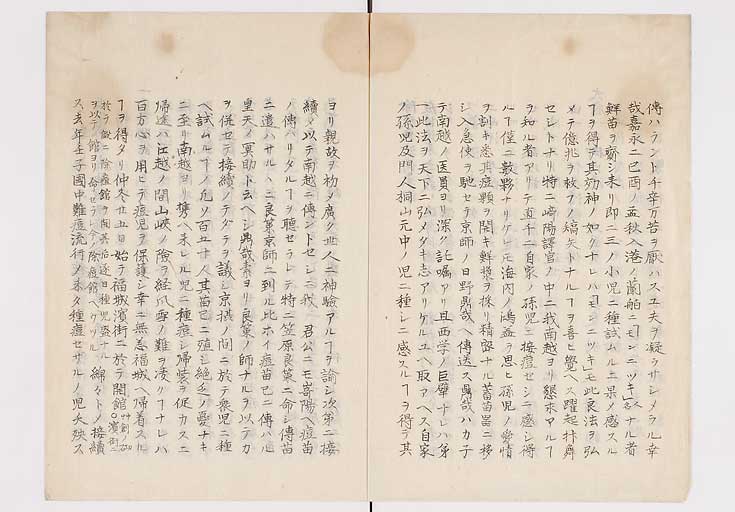 傳ハラント千辛万苦ヲ厭ハス工夫ヲ凝ラサシメラル幸
哉嘉永二己酉ノ孟秋入港ノ蘭舶ニ「モンニツキ」名人ナル者
鮮苗ヲ齎シ来リ即二三ノ小児ニ種試ムルニ果メ感スル
ヿヲ得テ其効神ノ如クナレハ「モンニツキ」モ此良法ヲ弘
メテ億兆ヲ救フノ嬌矢トナルヿヲ喜ヒ覺ヘス躍起抃舞
セシトナリ特ニ崎陽譯官ノ中ニ我南越ヨリ懇求アルヿ
ヲ知ル者アリテ直チニ自家ノ孫児ニ接痘セシニ感シ得
ルヿ僅ニ数夥ナリケレ𪜈海内ノ鴻益ヲ思ヒ孫児ノ愛情
ヲ割キ悉其痘顆ヲ開キ鮮漿ヲ採リ精密ナル蓄苗器ニ移
シ入急使ヲ馳セ京師ノ日野鼎哉ヘ傳送ス鼎哉ハカ子
テ南越ノ医員ヨリ深ク託嘱アリ且西学ノ巨擘ナレハ第
一此法ヲ天下ニ弘メタキ志アリケルユヘ取アヘス自家
ノ孫児及門人桐山元中ノ児ニ種シニ感スルヿヲ得テ其
ヨリ親故ヲ初メ廣ク世人ニ神驗アルヿヲ諭シ次第ニ接
續メ以テ南越ニ傳ントセシニ我 君公ニモ嵜陽ヘ痘苗
ノ傳ハリタルヿヲ聽セラレテ特ニ笠原良策ニ命シ傳苗
ニ遣ハサルヘニ良策京師ニ到ル比ホイ痘苗已ニ傳ハル
皇天ノ冥助ト云ヘシ鼎哉素ヨリ良策ノ師ナルヲ以テカ
ヲ併セテ接續ノテダテヲ議シ京摂ノ間ニ於テ衆児ニ種
ヘ試ムルヿノ凡ソ百五十人其苗已ニ殖シ絶乏ノ憂ナキ
ニ至リ南越ヨリ携ヘ来レル児ニ種痘シ帰装ヲ促カスニ
帰途ハ江越ノ間山峡ノ險ヲ経爪雪ノ難ヲ凌クヿナレハ
百方心ヲ用ヒテ痘児ヲ保護シ幸ニ無恙福城ヘ帰着スル
ヿヲ得タリ仲冬廿五日始テ福城濱街ニ於テ開館
ス去年壬子國中難痘流行メ未タ種痘セサルノ児夭殀ス